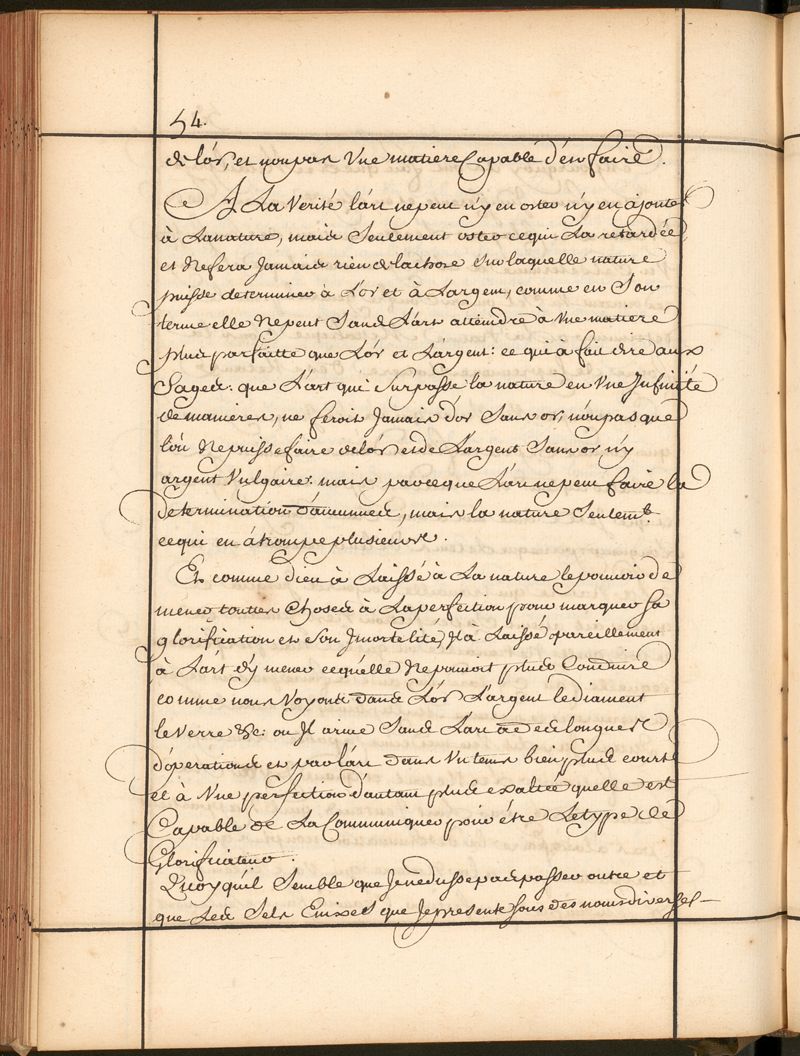 54.
de lór, et non pas Vne matiere Capable d'en faire.
A La Verité lárt ne peut n'y en oster n'y en ájouter
à La nature, mais Seulement oster ce qui La retardée
et Ne fera Jamais rien de la chose Sur laquelle nature
puisse determiner à L'or et à L'argent, comme en Son
terme elle Ne peut Sans L'art atteindre à Vne matiere
plus parfaitte que L'ór et L'argent: ce qui à fait dire aux
Sages: que L'art qui Surpasse la nature en Vne Infinitée
de manieres, ne feroit Jamais d'or Sans or, nón pas que
l'ón Ne puisse faire de lór et de L'argent Sans or n'y
argent Vulgaire: mais parce que L'art ne peut faire la
determination mais la nature Seulemt.
ce qui en á trompé plusieurs.
Et comme dieu à Laissé à La nature le pouvoir de
mener toutes Choses à La perfection pour marquer Sa
glorification et Son Jmortelité, Il à Laissé pareillement
à L'árt d'y mener ce qu'elle Ne pouvoit plus Conduire
comme nous Voyons dans L'ór L'argent le diament
le Verre &c: ou Jl arive Sans L'art a de longues
d'operations et par lárt dans Vn tems bien plus court
et à Vne perfection d'autant plus exaltée quelle est
Capable de La Communiquer pour étre Le type de
Glorificateur.
Quoy qu'il Semble que Je ne dusse pas passer outre et
que Les Sels que Je presente sous des noms diverses